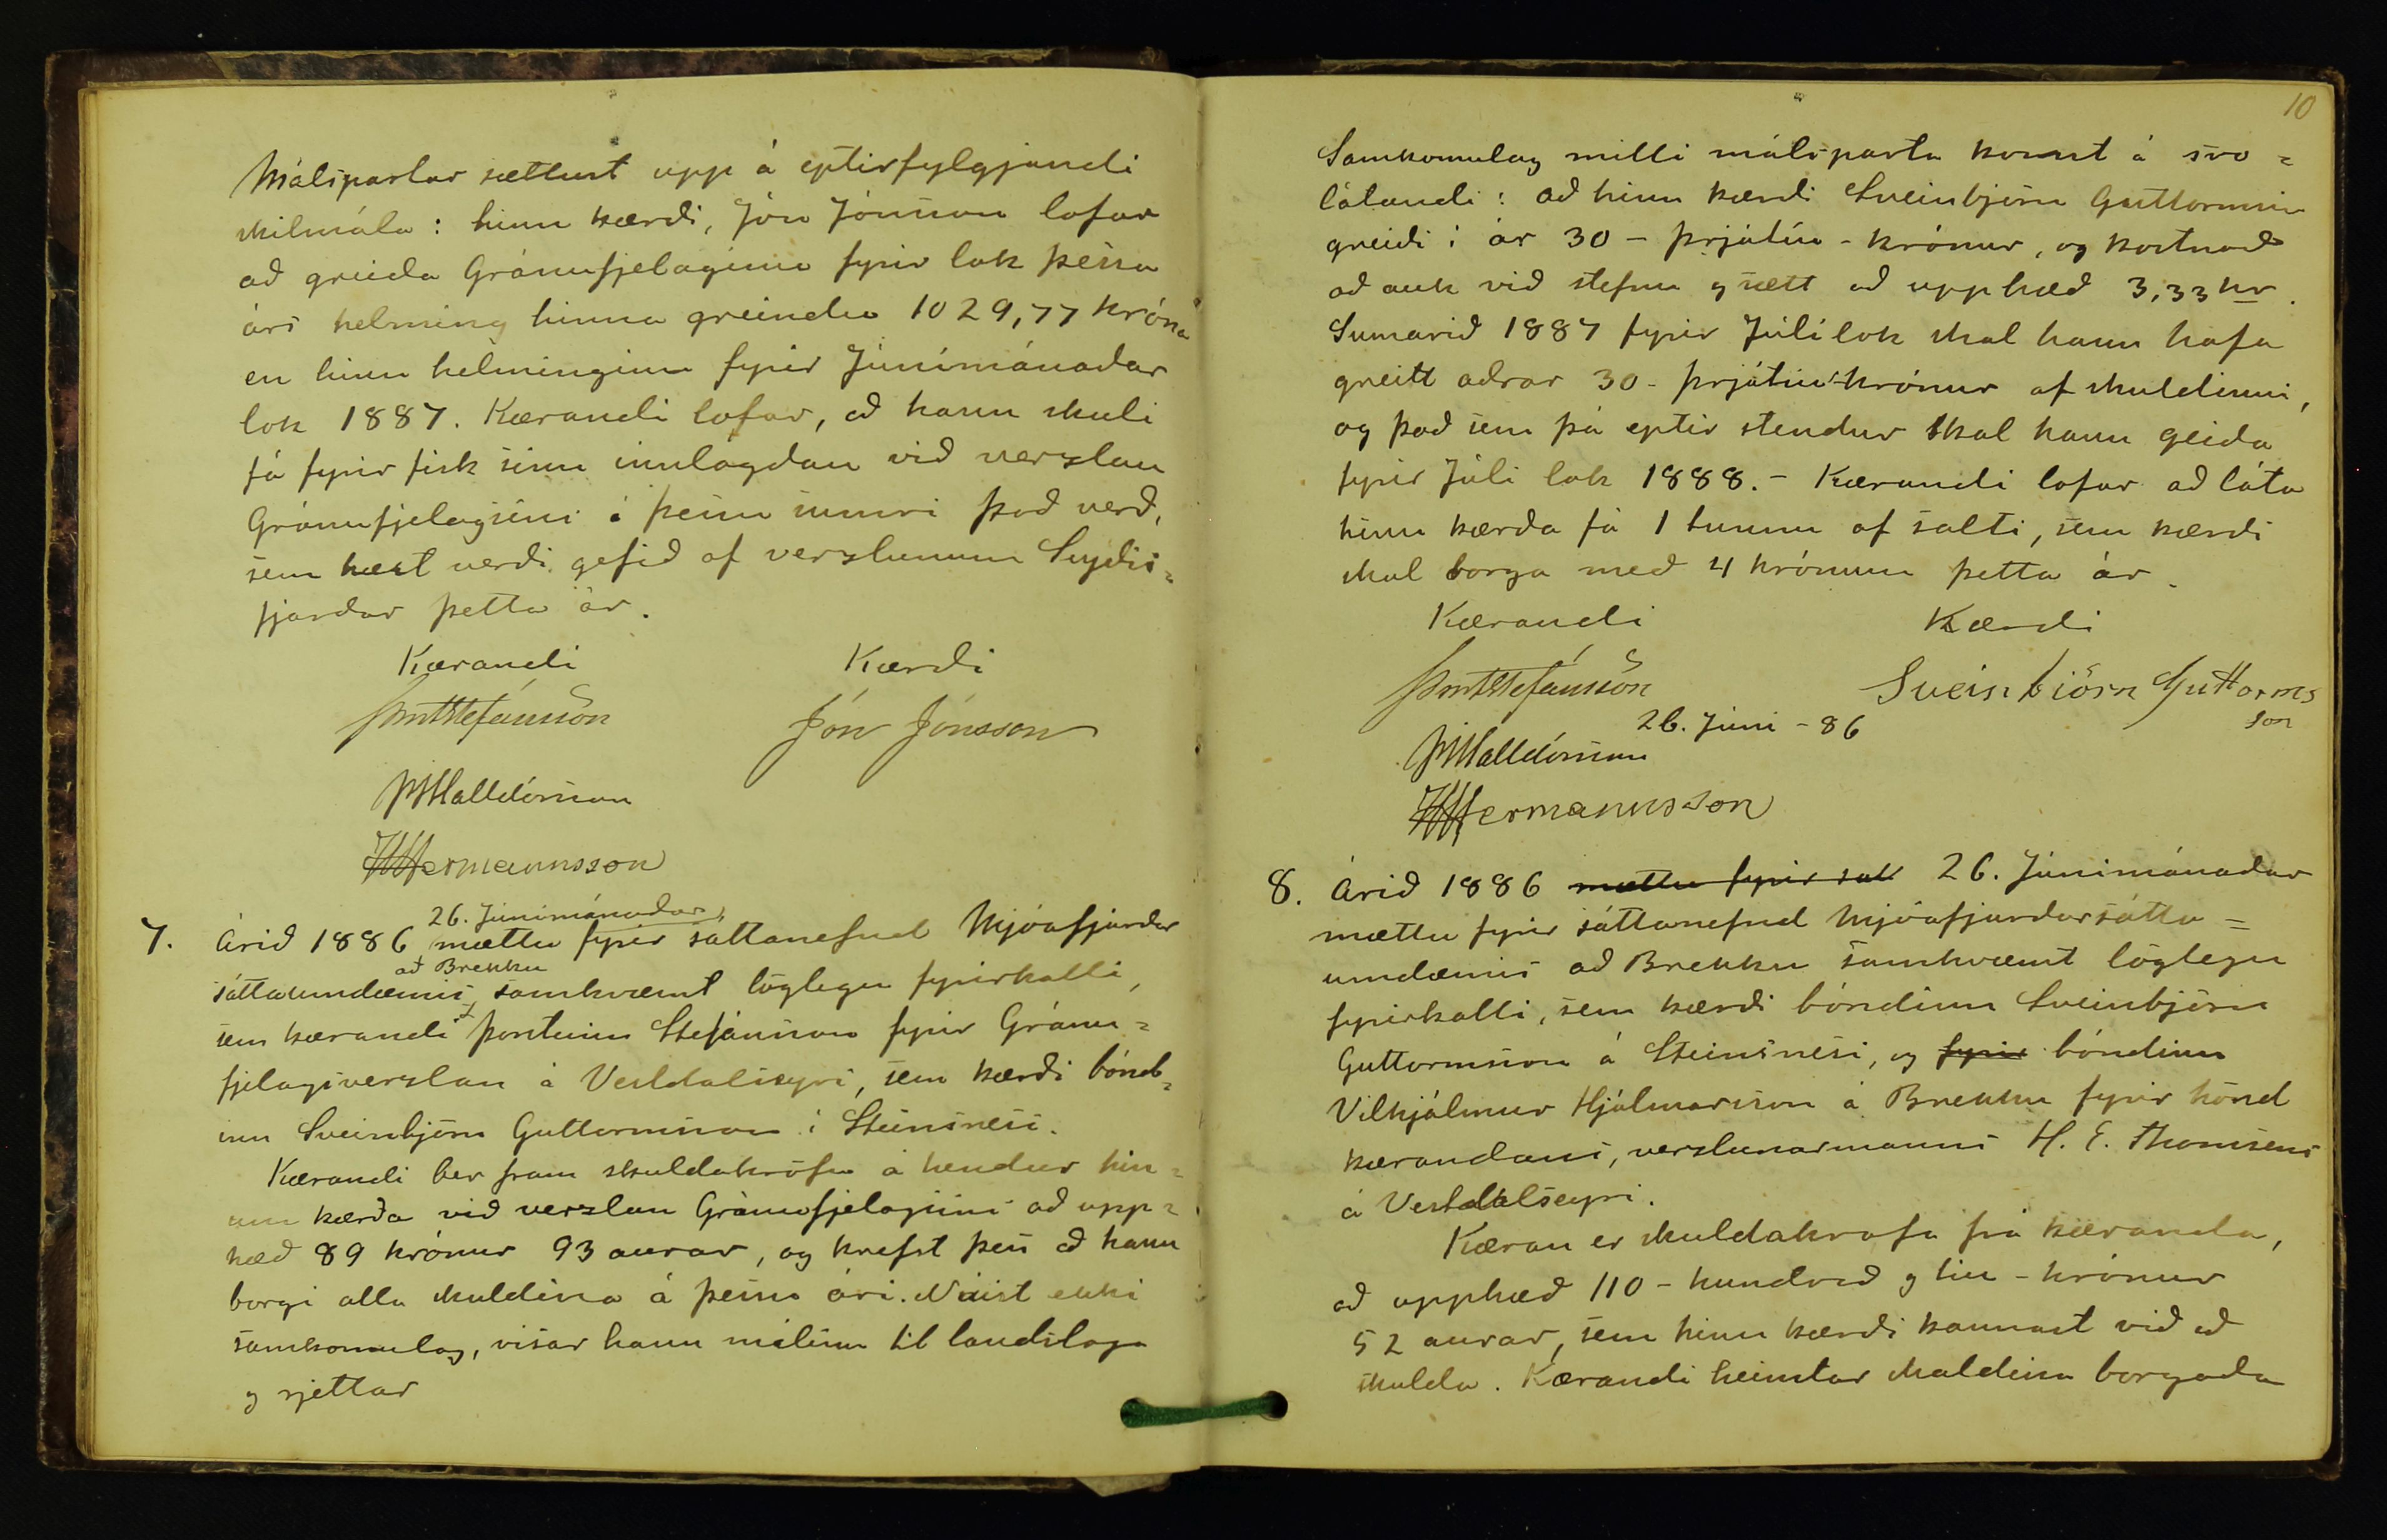 Málspartar sættust upp á eptirfylgjandi
skilmála: hinn kærdi, Jón Jónsson lofar
að greiða Gránufjelaginu fyrir lok þessa
árs helming hinna greindu 1029,77 króna
en hinn helminginn fyrir Júnímánaðar
lok 1887. Kærandi lofar, að hann skuli
fá fyrir fisk sinn innlagðan við verzlan
Gránufjelagsins á þessu sumri það verð,
sem hæst verði gefið af verzlunum Seyðis=
fjarðar þetta ár.
Kærandi Kærði
ÞorstStefánsson Jón Jónsson
ÞHalldórsson
HHermannsson
26. Júnímánaðar,
7. Árið 1886 mættu fyrir sáttanefnd Mjóafjarðar
að Brekku
sáttaumdæmis, samkvæmt löglegu fyrirkalli,
sem kærandi Þorsteinn Stefánsson fyrir Gránu=
fjelagsverzlan á Vestdalseyri, sem kærði bónd=
inn Sveinbjörn Guttormsson í Steinsnesi.
Kærandi ber fram skuldakröfu á hendur hin=
um kærða við verzlan Gránufjelagsins að upp=
hæð 89 krónur 93 aurar, og krefst þess að hann
borgi alla skuldina á þessu ári. Náist ekki
samkomulag, vísar hann málinu til landslaga
og rjettar
10
Samkomulag milli málsparta komst á svo=
látandi: að hinn kærdi Sveinbjörn Guttormsson
greiði í ár 30 - þrjátíu - krónur, og kostnað
að auk við stefnu og sætt að upphæð 3,33 kr.
Sumarið 1887 fyrir Júlílok skal hann hafa
greitt aðrar 30 - þrjátíu - krónur af skuldinni,
og það sem þá eptir stendur skal hann geiða
fyrir Júli lok 1888. - Kærandi lofar að láta
hinn kærða fá 1 tunnu af salti, sem kærði
skal borga með 4 krónum þetta ár.
Kærandi Kærdi
ÞorstStefánsson Sveinbiörn Guttorms
son
26. Júni - 86
ÞHalldórsson
HHermannsson
8. Árið 1886 mættu fyrir sátt 26. Júnímánaðar
mættu fyrir sáttanefnd Mjóafjarðarsátta=
umdæmis að Brekku samkvæmt löglegu
fyrirkalli, sem kærði bóndinn Sveinbjörn
Guttormsson á Steinsnesi, og fyrir bóndinn
Vilhjálmur Hjálmarsson á Brekku fyrir hönd
kærandans, verzlunarmanns H. E. Thomsens
á Vestdalseyri.
Kæran er skuldakrafa frá kæranda,
að upphæð 110 - hundrað og tíu - krónur
52 aurar, sem hinn kærði kannast við að
skulda. Kærandi heimtar skuldina borgaða